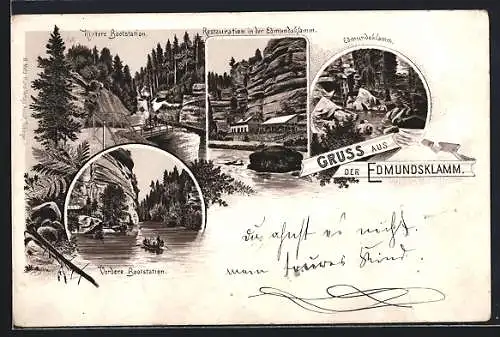 Mittlere Bootstation.
Restauration in der Edmundsklamm.
Edmundsklamm.
GRUSS AUS
DER EDMUNDSKLAMM.
Vordere Bootstation.
du ahnst es nicht
mein treues Kind.